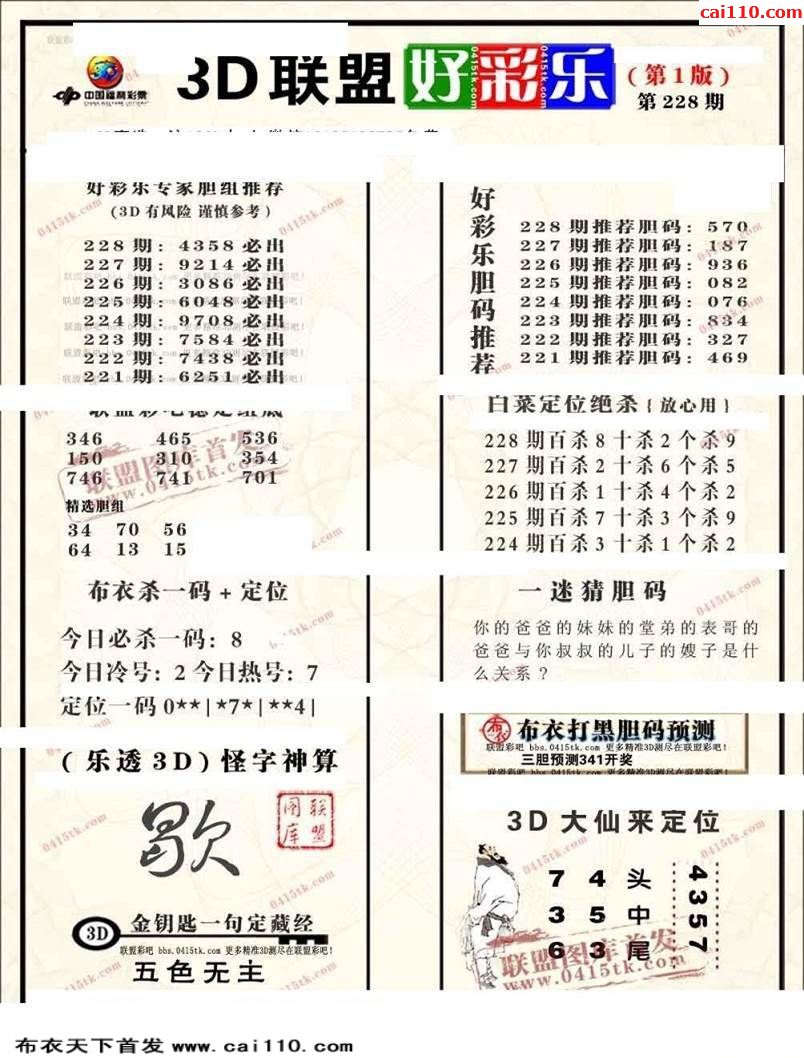 cai110.com
3D联盟好彩乐
(第1版)
第228期
中国福利彩票
CHINA WELFARE LOTTERY
好彩乐专家胆组推荐
(3D有风险 谨慎参考)
228期:4358必出
227期:9214必出
226期:3086必出
225期:6048必出
224期:9708必出
223期:7584必出
222期:7438必出
221期:6251必出
346 465 536
150 310 354
746 741 701
精选胆组
34 70 56
64 13 15
布衣杀一码+定位
今日必杀一码:8
今日冷号:2 今日热号:7
定位一码0**|*7*|**4|
(乐透3D)怪字神算
歇
联盟图库
3D 金钥匙一句定藏经
联盟彩吧 bbs.0415tk.com 更多精准3D测尽在联盟彩吧!
五色无主
好彩乐胆码推荐
228期推荐胆码:570
227期推荐胆码:187
226期推荐胆码:936
225期推荐胆码:082
224期推荐胆码:076
223期推荐胆码:834
222期推荐胆码:327
221期推荐胆码:469
白菜定位绝杀{放心用}
228期百杀8十杀2个杀9
227期百杀2十杀6个杀5
226期百杀1十杀4个杀2
225期百杀7十杀3个杀9
224期百杀3十杀1个杀2
一迷猜胆码
你的爸爸的妹妹的堂弟的表哥的
爸爸与你叔叔的儿子的嫂子是什
么关系?
布衣打黑胆码预测
联盟彩吧 bbs.0415tk.com 更多精准3D测尽在联盟彩吧!
三胆预测341开奖
3D大仙来定位
7 4 头
3 5 中
6 3 尾
4357
联盟图库首发
www.0415tk.com
布衣天下首发 www.cai110.com